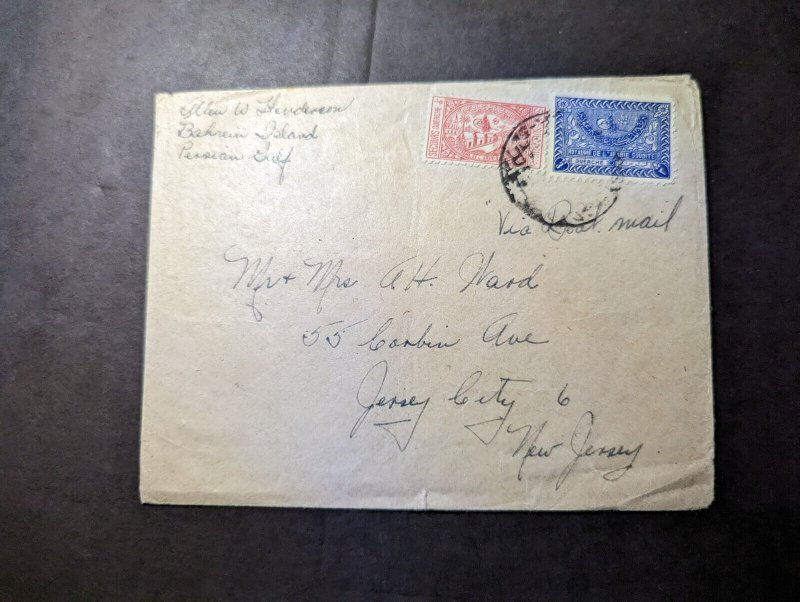 Allen W Henderson
Bahrein Island
Persian Gulf
ROYAUME DE L'ARABIE SOUDITE
"Via Boat mail
Mr & Mrs A.H. Ward
55 Corbin Ave
Jersey City 6
New Jersey